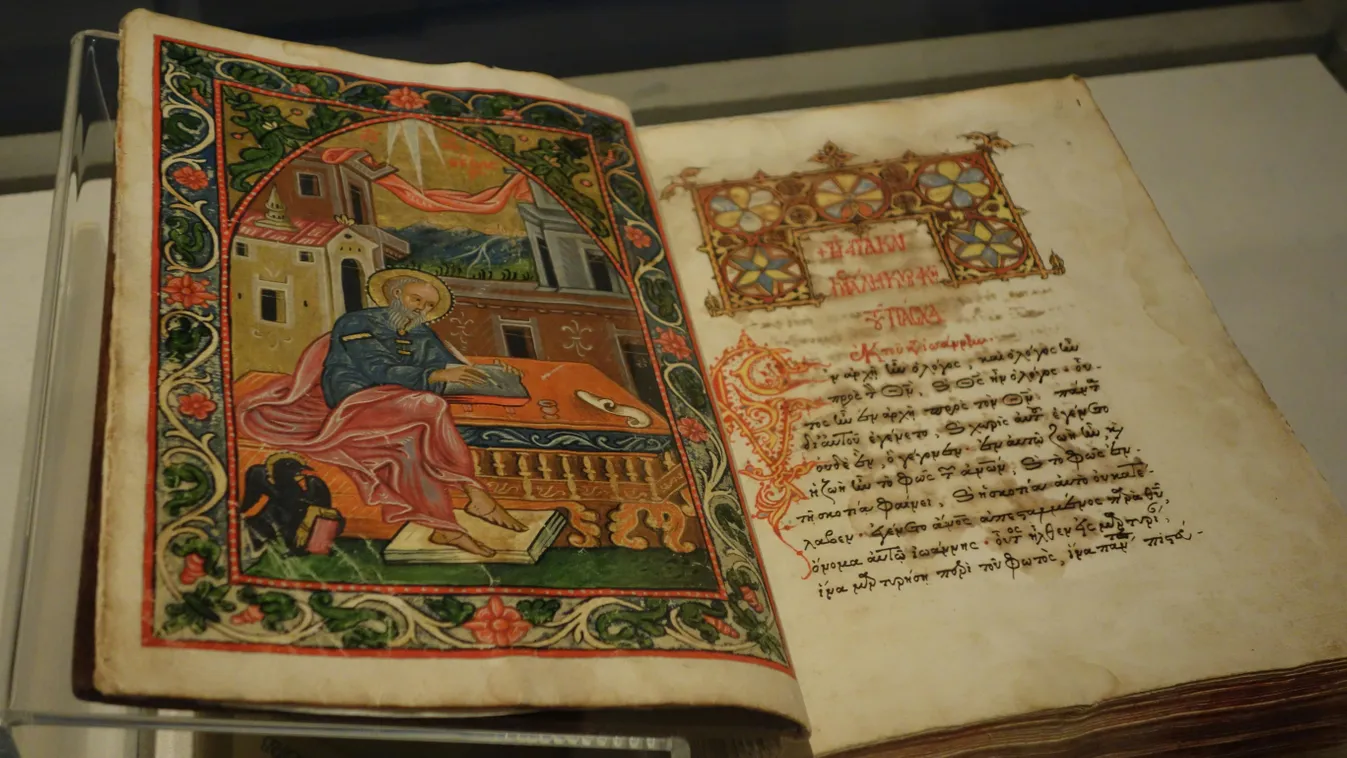 τῇ ἁγίᾳ καὶ
μεγάλῃ κυριακῇ
τοῦ πάσχα
Ἐκ τοῦ κατὰ ἰωάννην.
Ἐν ἀρχῇ ἦν ὁ λόγος καὶ ὁ λόγος ἦν
πρὸς τ θν, καὶ θς ἦν ὁ λόγος. οὗ
τος ἦν ἐν ἀρχῇ πρὸς τὸν θν. πάντ
δι αὐτοῦ ἐγένετο, καὶ χωρὶς αὐτ ἐγένετο
οὐδὲ ἕν, ὃ γέγονεν. ἐν αὐτῷ ζωὴ ἦν, κ
ἡ ζωὴ ἦν τὸ φῶς τ ἀνων, καὶ τὸ φῶς ἐν
τῇ σκοτίᾳ φαίνει, καὶ ἡ σκοτία αὐτὸ οὐ κατέ
λαβεν. ἐγένετο ἄνος ἀπεσταλμένος παρὰ θυ,
ὄνομα αὐτῷ ἰωάννης. οὗτος ἦλθεν εἰς μαρτυρί,
ἵνα μαρτυρήσῃ περὶ τοῦ φωτὸς, ἵνα πάντ πιστεύ-